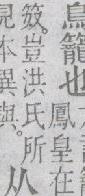 鳥籠也
鳳皇在
笯。豈洪氏所
見本異與。
从